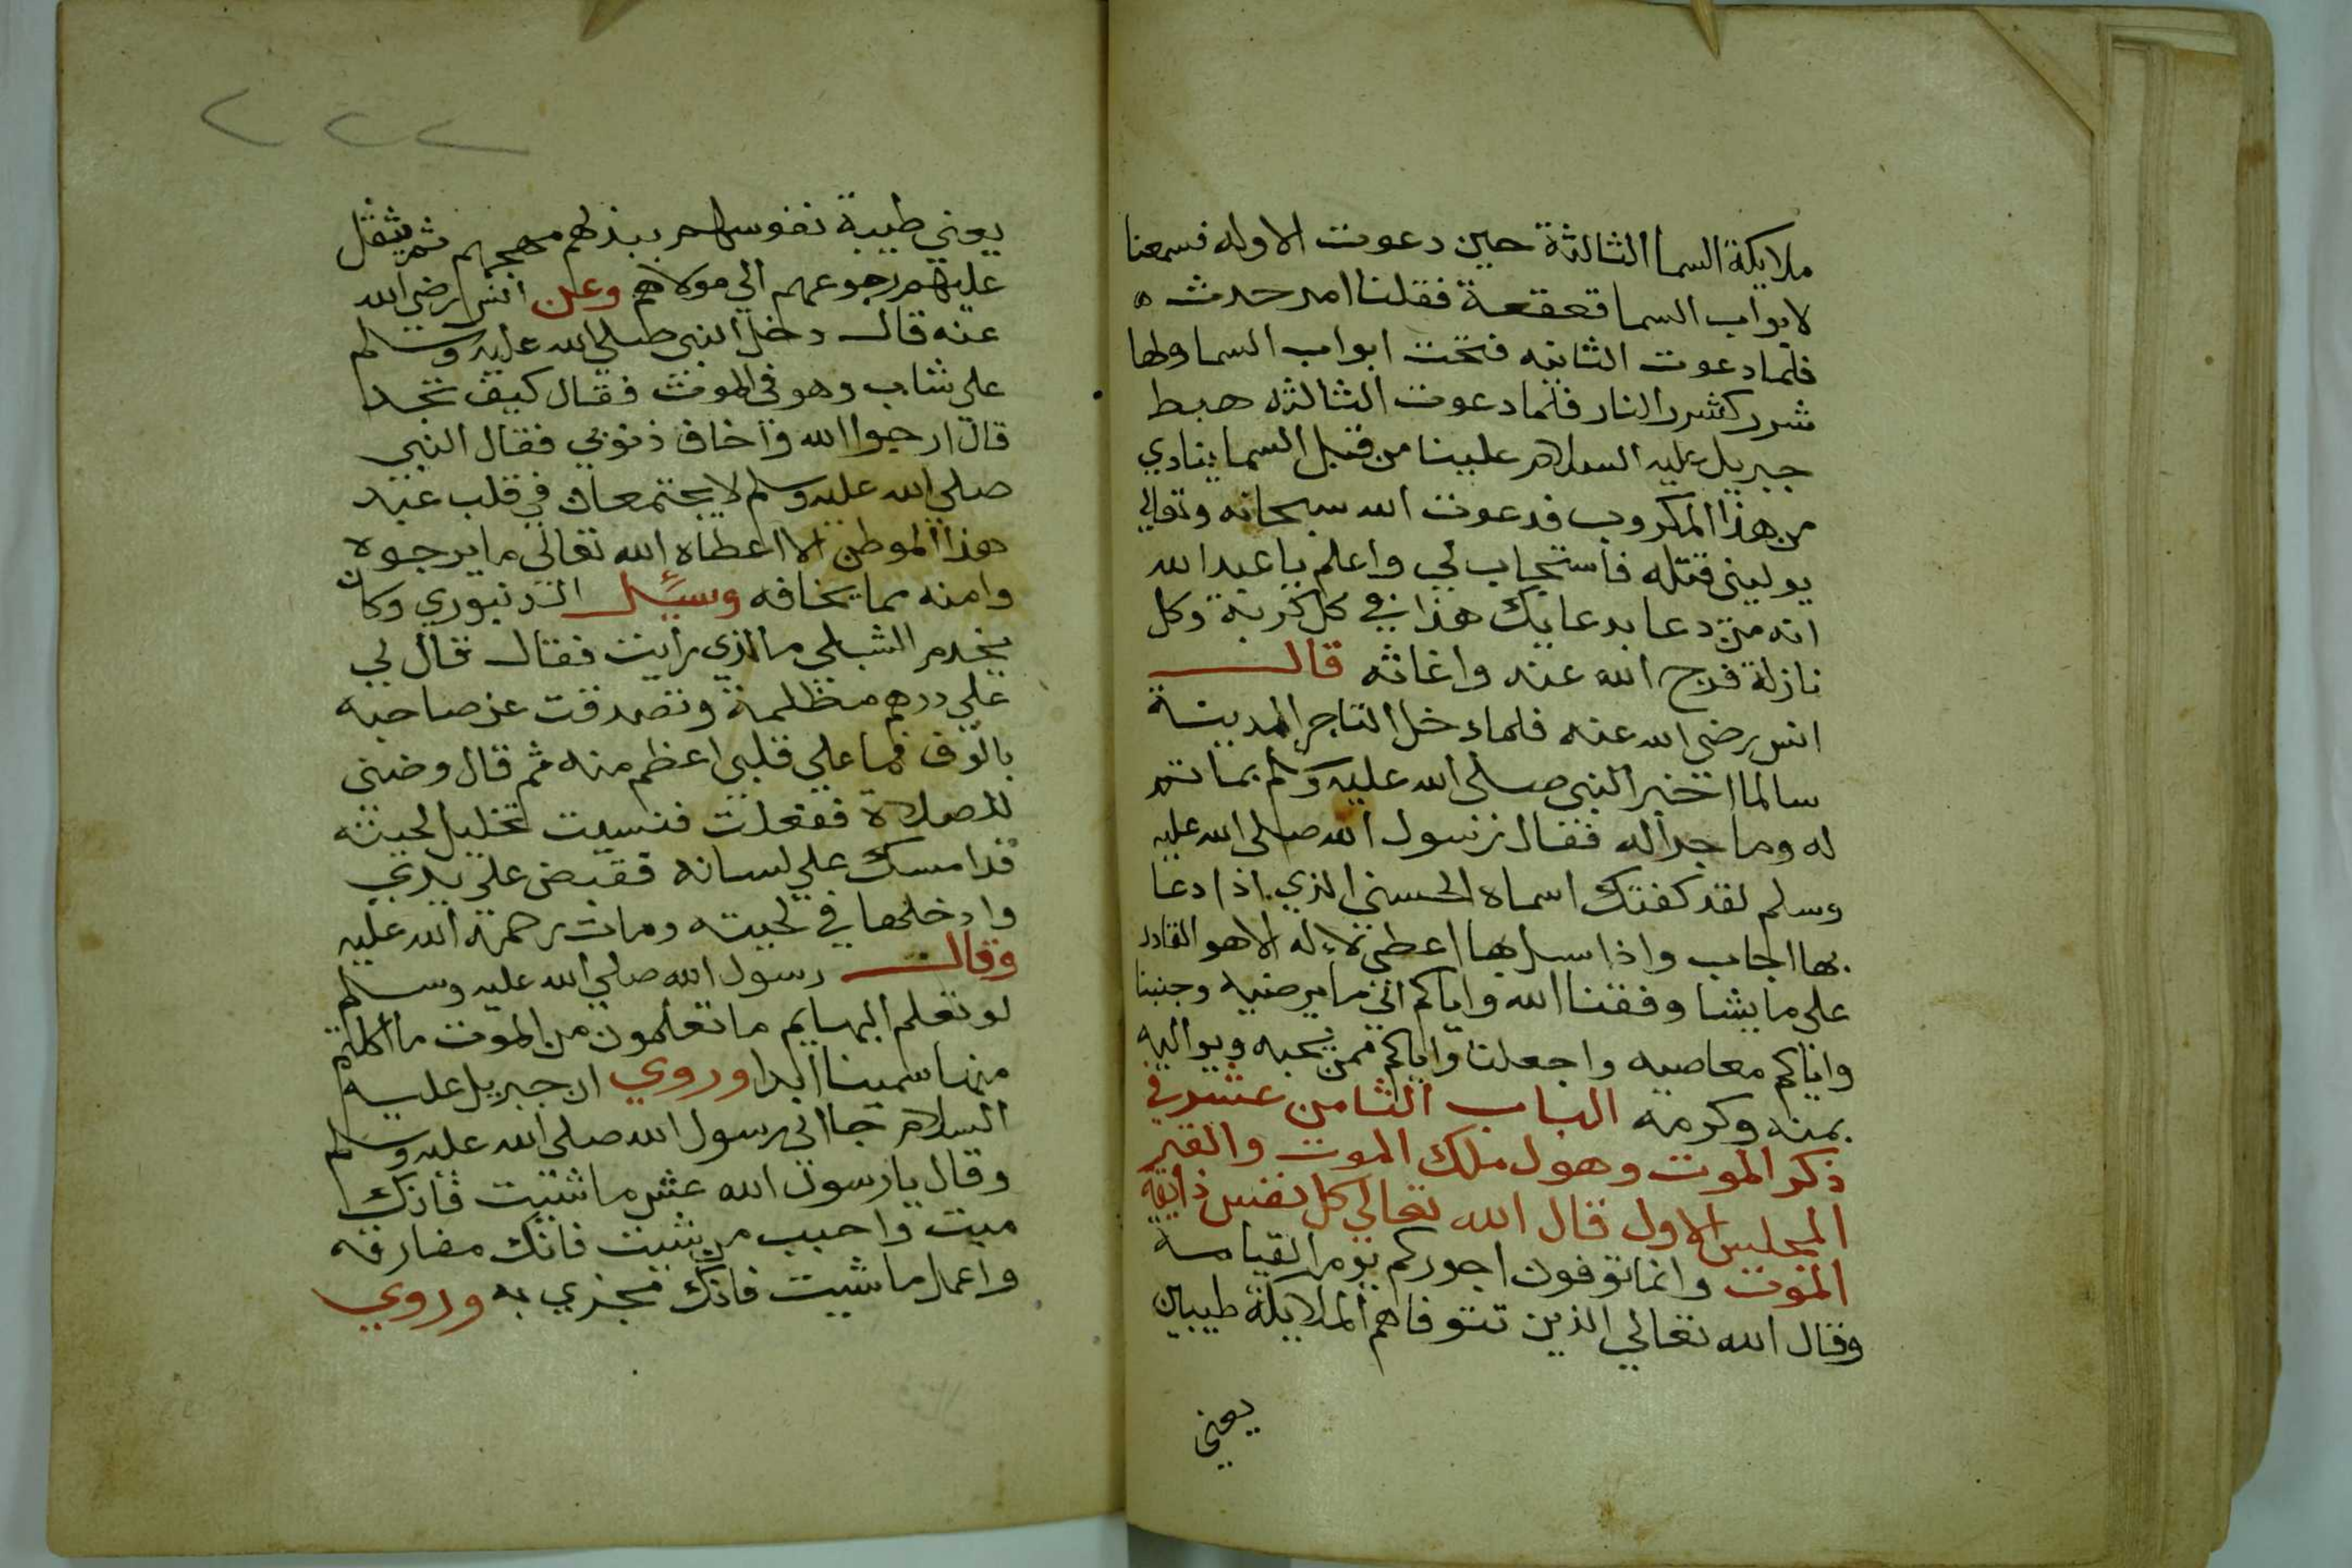 ملايكة السما الثالثة حين دعوت الاوله فسمعنا
لابواب السما قعقعة فقلنا امر حدث
فلما دعوت الثانيه فتحت ابواب السما ولها
شرر كشرر النار فلما دعوت الثالثه هبط
جبريل عليه السلام علينا من قبل السما ينادي
من هذا المكروب فدعوت الله سبحانه وتعالي
يوليني قتله فاستجاب لي واعلم يا عبد الله
انه من دعا بدعايك هذا في كل كربة وكل
نازلة فرج الله عنه واغاثه قال
انس رضي الله عنه فلما دخل التاجر المدينة
سالما اخبر النبي صلى الله عليه وسلم بما تم
له وما جرا له فقال رسول الله صلى الله عليه
وسلم لقد كفتك اسماه الحسني الذي اذا دعا
بها اجاب واذا سيل بها اعطي لا اله الا هو القادر
على ما يشا وفقنا الله واياكم الي ما يرضيه وجنبنا
واياكم معاصيه واجعلنا واياكم ممن يحبه ويواليه
بمنه وكرمه الباب الثامن عشر في
ذكر الموت وهول ملك الموت والقبر
المجلس الاول قال الله تعالي كل نفس ذايقة
الموت وانما توفون اجوركم يوم القيامة
وقال الله تعالي الذين تتوفاهم الملايكة طيبين
يعني
٢٢٢
يعني طيبة نفوسهم ببذلهم مهجهم ثم يثقل
عليهم رجوعهم الي مولاهم وعن انس رضي الله
عنه قال دخل النبي صلي الله عليه وسلم
على شاب وهو في الموت فقال كيف تجد
قال ارجوا الله واخاف ذنوبي فقال النبي
صلي الله عليه وسلم لا يجتمعان في قلب عبد
هذا الموطن الا اعطاه الله تعالي ما يرجوه
وامنه مما يخافه وسيل الدنيوري وكان
يخدم الشبلي ما الذي رايت فقال قال لي
علي درهم مظلمة وتصدقت عن صاحبه
بالوف فما علي قلبي اعظم منه ثم قال وضني
للصلاة ففعلت فنسيت تخليل لحيته
قد امسك علي لسانه فقبض علي يدي
وادخلها في لحيته ومات رحمة الله عليه
وقال رسول الله صلي الله عليه وسلم
لو تعلم البهايم ما تعلمون من الموت ما اكلتم
منها سمينا ابدا وروي ان جبريل عليه
السلام جا الي رسول الله صلي الله عليه وسلم
وقال يا رسول الله عش ما شيت فانك
ميت واحبب من شيت فانك مفارقه
واعمل ما شيت فانك مجزي به وروي